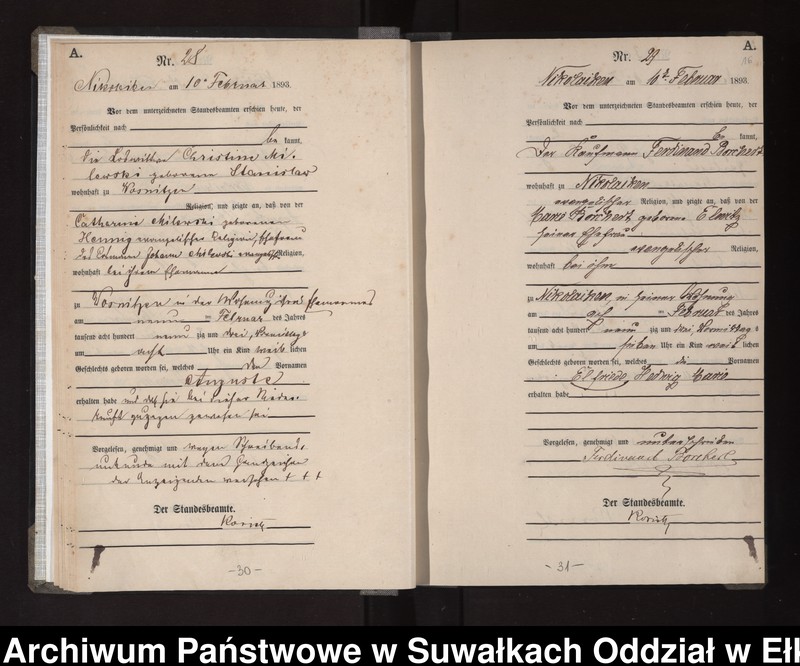 A.
Nr. 28
am 10ᵗ Februar 1893.
Vor dem unterzeichneten Standesbeamten erschien heute, der
Persönlichkeit nach
be kannt,
die Christine Mi-
lewski geborene Stanislaw
wohnhaft zu Wosnitzen
Religion, und zeigte an, daß von der
Catharine Milewski geborenen
Hennig evangelischer Religion, Ehefrau
des Johann Milewski Religion,
wohnhaft bei ihrem Ehemanne
zu Wosnitzen in der Wohnung ihres Ehemannes
am neunten Februar des Jahres
tausend acht hundert neun zig und drei, Vormittags
um acht Uhr ein Kind weib lichen
Geschlechts geboren worden sei, welches den Vornamen
Auguste
erhalten habe und daß sie bei dieser Nieder-
kunft zugegen gewesen sei
Vorgelesen, genehmigt und wegen Schreibens-
unkunde mit dem Handzeichen
der Anzeigenden versehen + + +
Der Standesbeamte.
-30-
A.
Nr. 29
Nikolaiken am 10ᵗ Februar 1893.
Vor dem unterzeichneten Standesbeamten erschien heute, der
Persönlichkeit nach
be kannt,
Der Kaufmann Ferdinand Borchert
wohnhaft zu Nikolaiken
evangelischer Religion, und zeigte an, daß von der
Marie Borchert geborene
seiner Ehefrau
evangelischer Religion,
wohnhaft bei ihm
zu Nikolaiken, in seiner Wohnung
am Februar des Jahres
tausend acht hundert neun zig und drei, Vormittag s
um sieben Uhr ein Kind weib lichen
Geschlechts geboren worden sei, welches die Vornamen
Elfriede, Hedwig Marie
erhalten habe
Vorgelesen, genehmigt und unterschrieben
Ferdinand Borchert
Der Standesbeamte.
-31-
Archiwum Państwowe w Suwałkach Oddział w Ełk